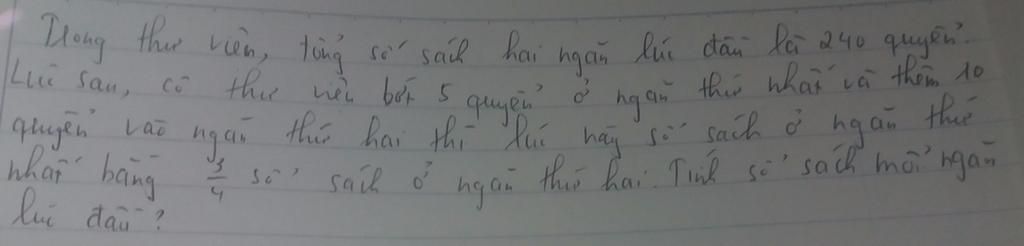 Trong thư viện, tổng số sách hai ngăn lúc đầu là 240 quyển.
Lúc sau, cô thư viện bớt 5 quyển ở ngăn thứ nhất và thêm 10
quyển vào ngăn thứ hai thì lúc này số sách ở ngăn thứ
nhất bằng 3/4 số sách ở ngăn thứ hai. Tính số sách mỗi ngăn
lúc đầu?